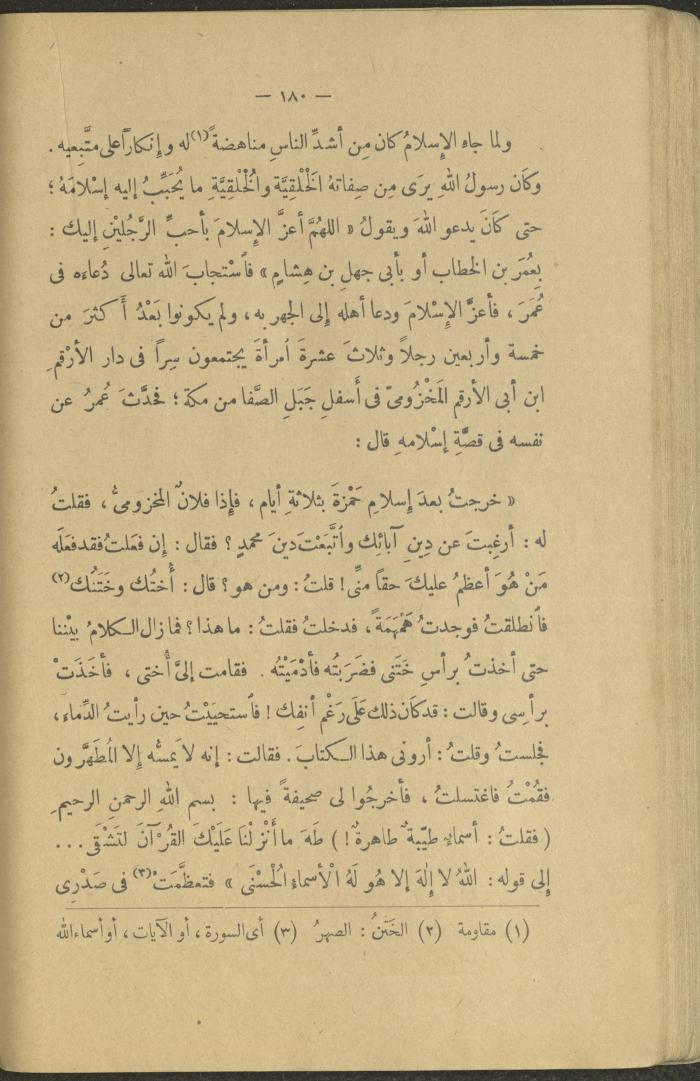 — ١٨٠ —
ولما جاء الإِسلامُ كان مِن أشدِّ الناسِ مناهضةً(١) له وإِنكاراً على متَّبِعيه .
وكَان رسولُ اللهِ يَرَى مِن صِفاتهُ الخَلْقِيَّة والخُلْقِيَّةِ ما يُحَبِّبُ إليه إِسْلامَهُ ؛
حتى كانَ يدعو اللهَ ويقولُ « اللهمَّ أعزَّ الإِسلامَ بأحبِّ الرَّجُلَيْنِ إليك :
بِعُمَرَ بن الخطاب أو بأبى جهلِ بن هِشامٍ » فاسْتجابَ الله تعالى دُعاءه فى
عُمَرَ ، فأعزَّ الإِسْلامَ ودعا أهلَه إِلى الجهر به ، ولم يكونوا بَعْدُ أَكثرَ من
خمسة وأربعين رجلاً وثلاثَ عشرةَ أمرأةً يجتمعون سِراً فى دار الأرْقمِ
ابن أبى الأرقم المَخْزُومىّ فى أَسفلِ جَبَلِ الصَّفا من مكة ؛ فحدَّثَ عُمرُ عن
نفسه فى قصَّةِ إِسْلامهِ قال :
« خرجتُ بعدَ إِسلامِ حَمْزةَ بثلاثةِ أيام ، فإِذا فلانٌ المخزومىُّ ، فقلتُ
له : أرغِبتَ عن دِينِ آبائِك واتَّبَعْتَ دينَ محمدٍ ؟ فقال : إِن فعَلتُ فقد فعَلَه
مَنْ هُوَ أعظمُ عليكَ حقاً منِّى ! قلتُ : ومن هو ؟ قال : أُختُك وخَتَنُك(٢)
فانطلقتُ فوجدتُ هَمْهَمَةً ، فدخلتُ فقلتُ : ما هذا ؟ فما زال الكلامُ بيْننا
حتى أخذتُ برأسِ خَتَنى فضَرَبتُه فأدْمَيْتُه . فقامت إِلىَّ أُختى ، فأخَذَتْ
برأسِى وقالت : قد كان ذلك عَلَى رَغْمِ أنفِك ! فاستحيَيْتُ حين رأيتُ الدِّماء ،
فجلستُ وقلتُ : أرونى هذا الكتابَ . فقالت : إنه لاَ يَمسُّه إِلا المُطَهَّرون
فقُمْتُ فاغتسلتُ ، فأخرجُوا لى صحيفةً فيها : بسم اللهِ الرحمنِ الرحيمِ
( فقلتُ : أسماءٌ طيِّبةٌ طاهرةٌ ! ) طَهَ ما أَنْزلْنا عَلَيْكَ القُرْآنَ لتَشْقَى ...
إلى قوله : اللهُ لا إِلَهَ إلا هُو لَهُ الْأَسماءِ الْحُسْنَى » فتعظَّمَتْ(٣) فى صَدْرِى
(١) مقاومة (٢) الخَتَنُ : الصهرُ (٣) أى السورة ، أو الآيات ، أو أسماء الله